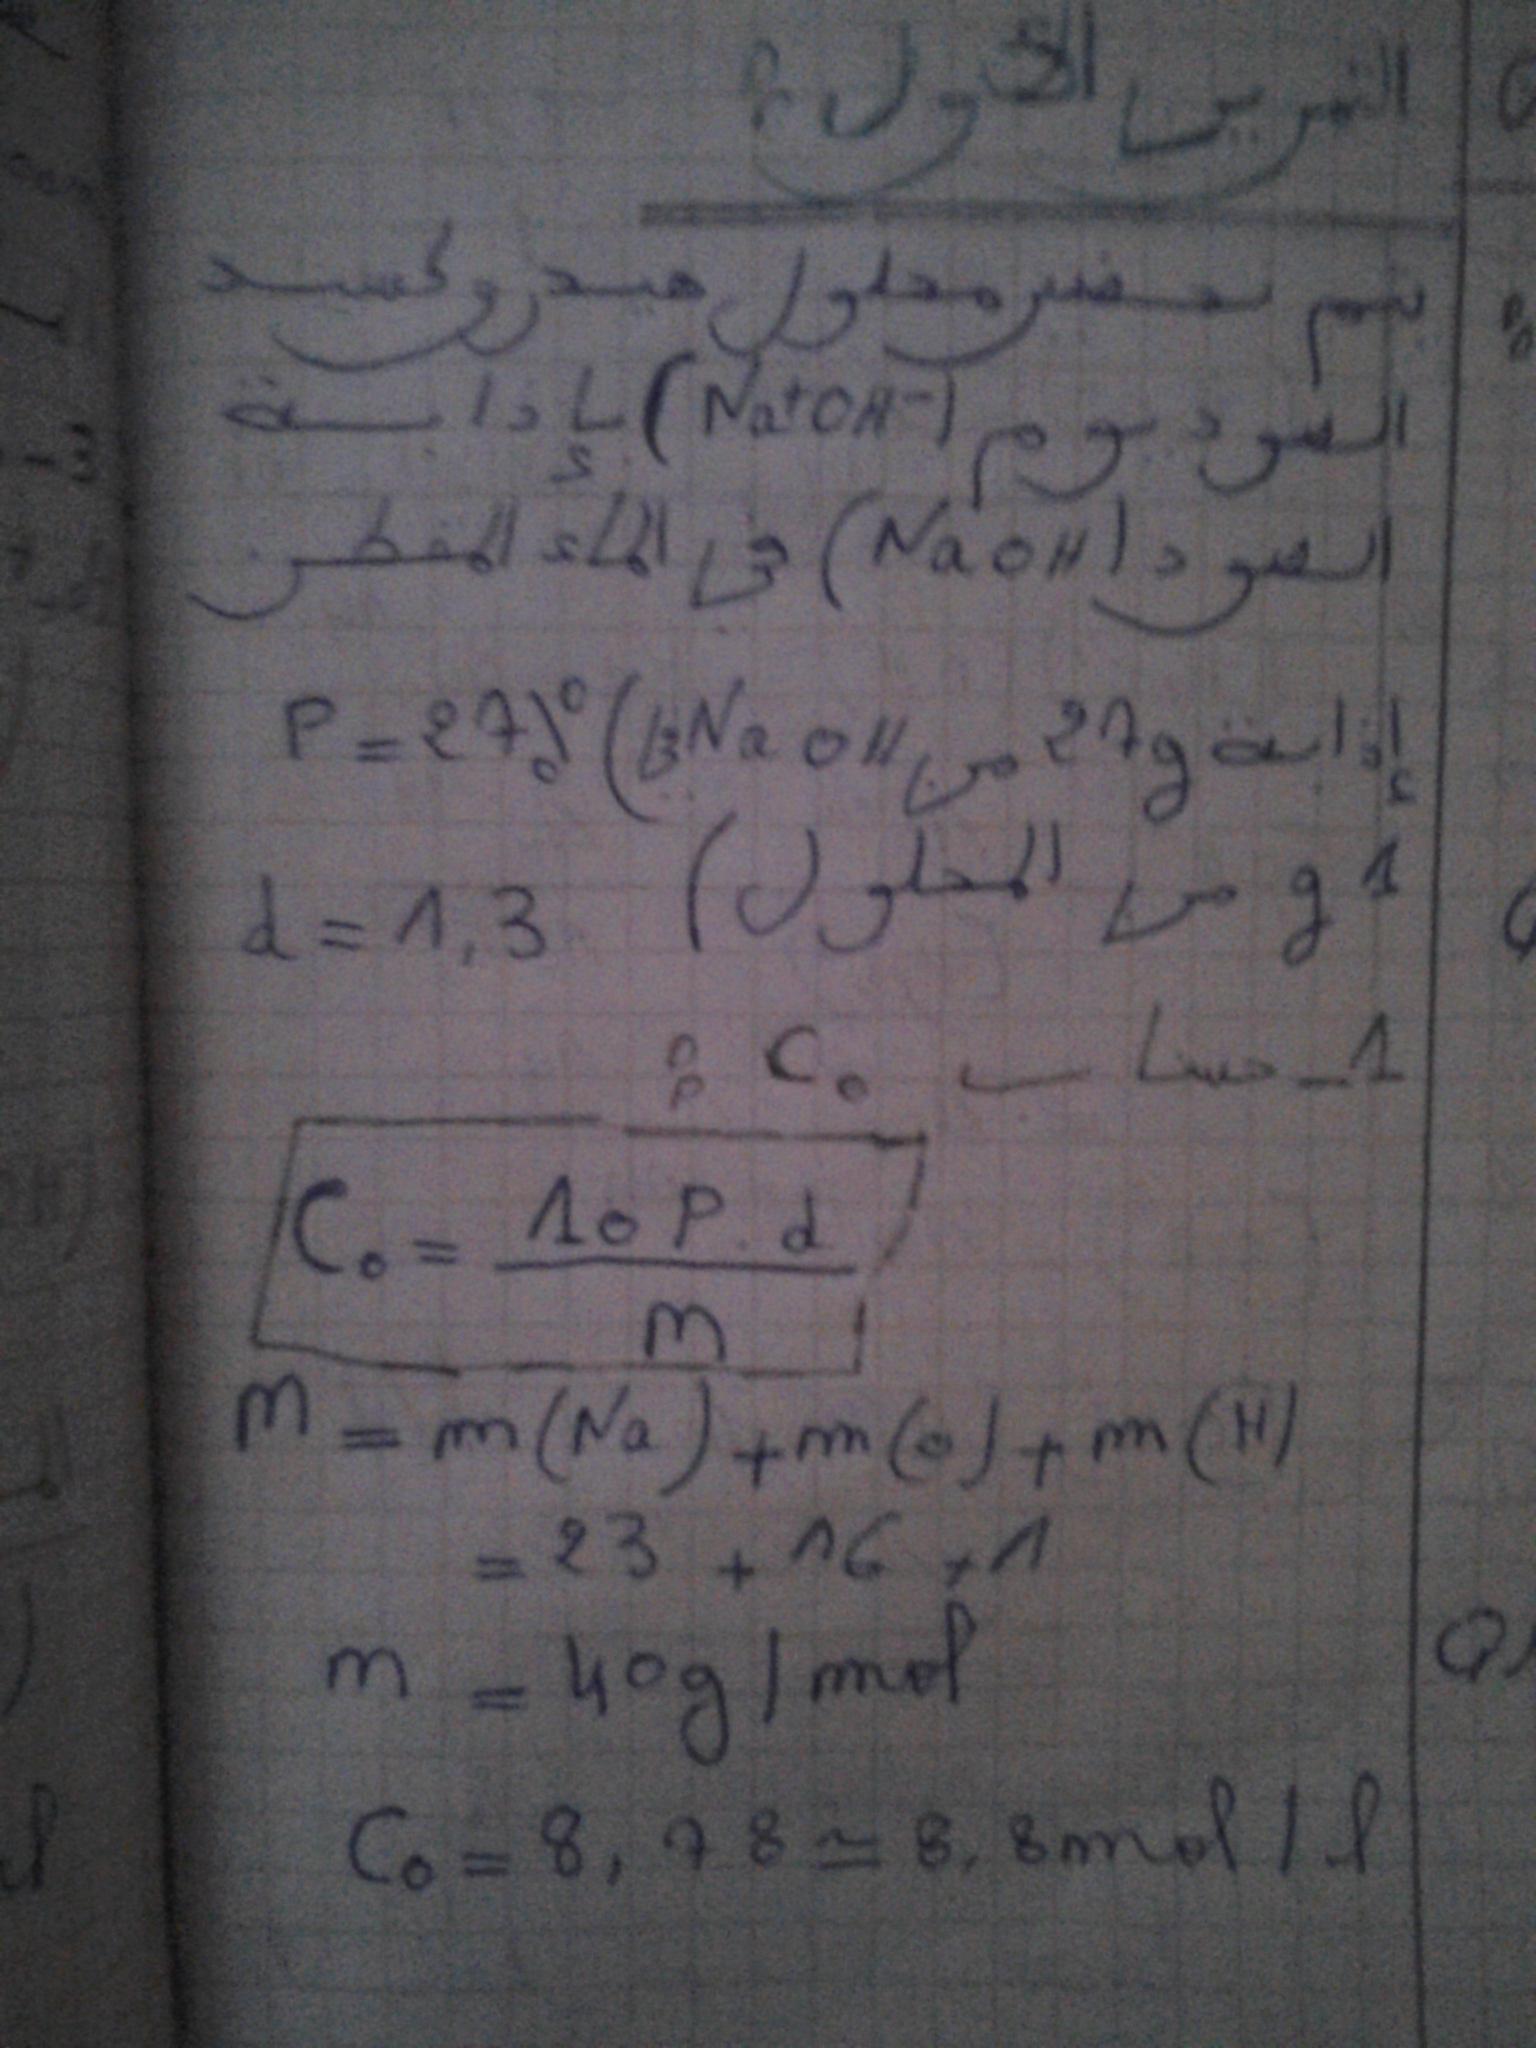 التمرين الأول:
يتم تحضير محلول هيدروكسيد
الصوديوم (Na+OH-) بإذابة
الصود (NaOH) في الماء المقطر
P = 27% (إذابة 27g من NaOH في
1 g من المحلول) d = 1,3
1 - حساب C0 :
C0 = 10 P . d / m
m = m(Na) + m(O) + m(H)
= 23 + 16 + 1
m = 40g/mol
C0 = 8,78 ≃ 8,8mol/l